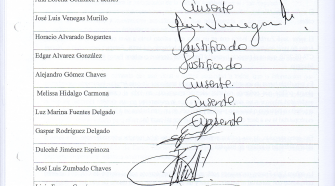 Ausente
José Luis Venegas Murillo
Horacio Alvarado Bogantes Justificado
Edgar Alvarez González Justificado
Alejandro Gómez Chaves Ausente.
Melissa Hidalgo Carmona Ausente
Luz Marina Fuentes Delgado Ausente
Gaspar Rodríguez Delgado
Dulcehé Jiménez Espinoza
José Luis Zumbado Chaves